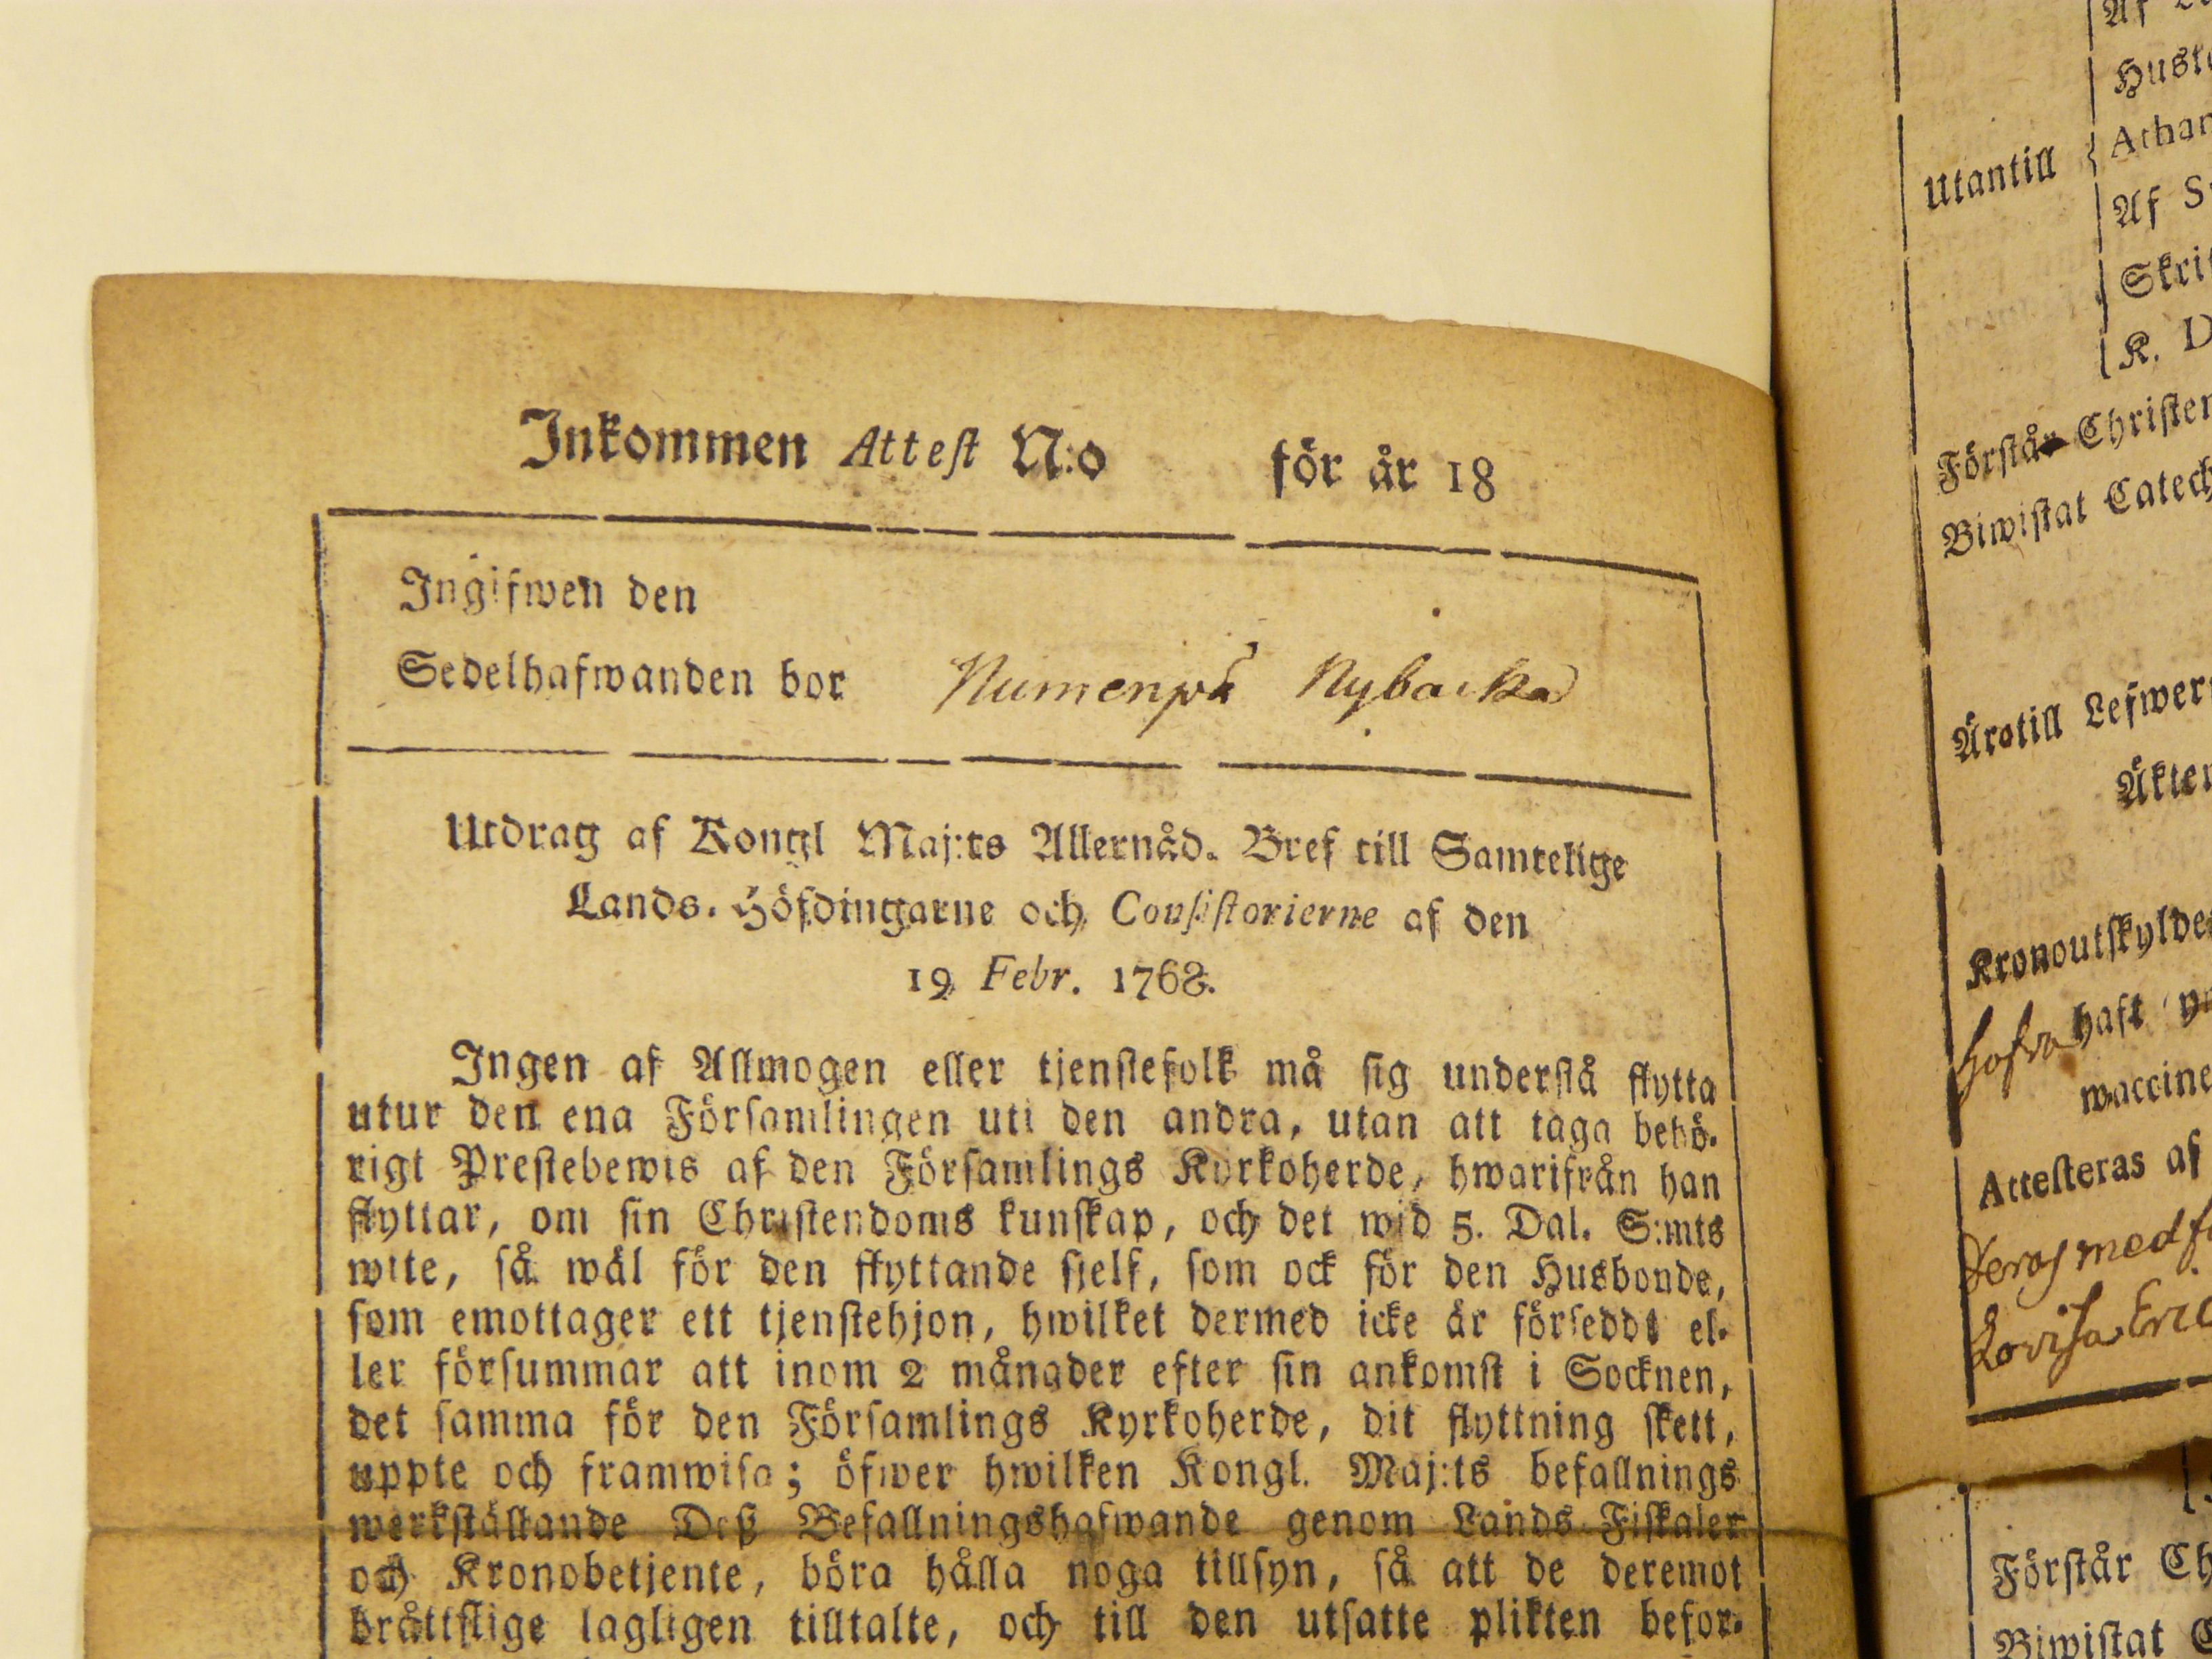 Inkommen Attest N:o för år 18
Ingifwen den
Sedelhafwanden bor Numenpä Nybacka
Utdrag af Kongl Maj:ts Allernåd. Bref till Samtelige
Lands-Höfdingarne och Consistorierne af den
19 Febr. 1768.
Ingen af Allmogen eller tjenstefolk må sig understå flytta
utur den ena Församlingen uti den andra, utan att taga behö-
rigt Prestebewis af den Församlings Kyrkoherde, hwarifrån han
flyttar, om sin Christendoms kunskap, och det wid 5. Dal. S:mts
wite, så wäl för den flyttande sjelf, som ock för den Husbonde,
som emottager ett tjenstehjon, hwilket dermed icke är försedt el-
ler försummar att inom 2 månader efter sin ankomst i Socknen,
det samma för den Församlings Kyrkoherde, dit flyttning skett,
uppte och framwisa; öfwer hwilken Kongl. Maj:ts befallnings
werkställande Deß Befallningshafwande genom Lands Fiskaler
och Kronobetjente, böra hålla noga tillsyn, så att de deremot
bråttslige lagligen tilltalte, och till den utsatte plikten befor-
Utantill
Af S
K. D
Förstår Christen
Biwistat Catech
Ärotill Lefwer
Kronoutskylde
hafwa haft
waccine
Attesteras af
Deras med
Lovisa Eric
Förstår Ch
Biwistat C